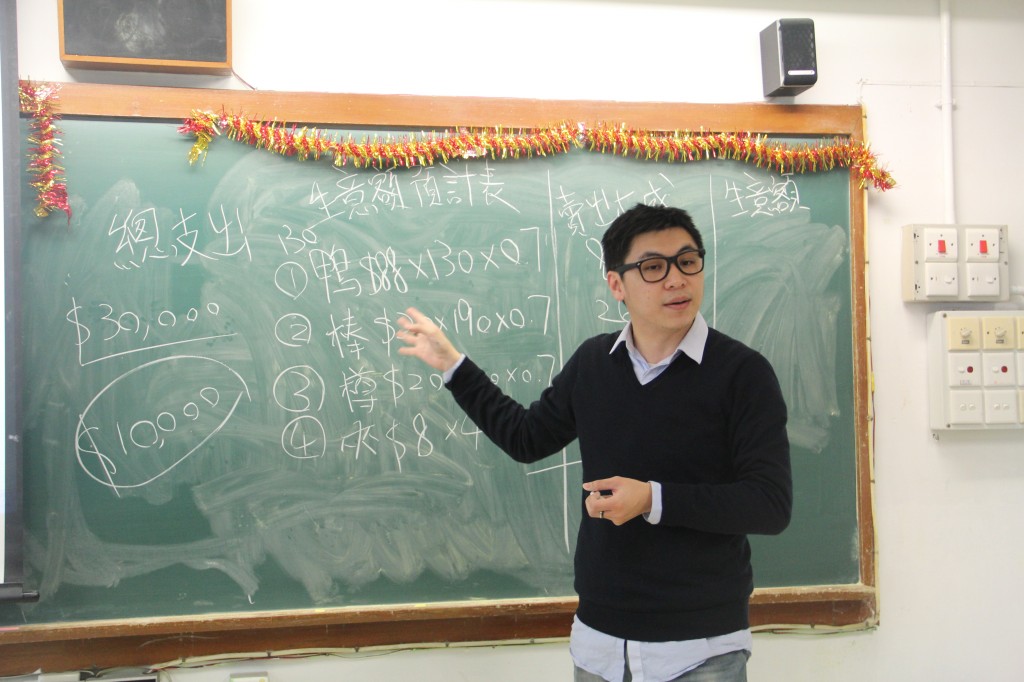 總支出
$30,000
$10,000
生意額預計表
130
① 鴨 $88×130×0.7
② 棒 $ ×190×0.7
③ 樽 $20 ×0.7
④ 夾 $8×4
賣出大成
生意額